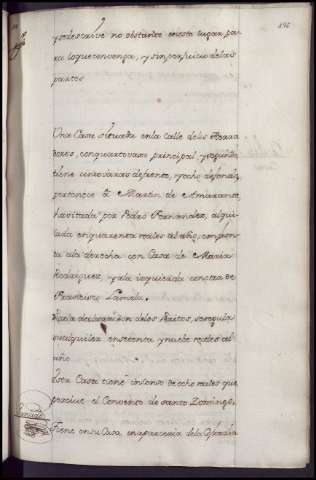 y se describe no obstante en este lugar, pa
ra lo que convenga, y sin perjuicio de las
partes
Una Casa situada en la Calle de los Herra
dores, con quarto vajo principal, y segundo,
tiene cinco varas de frente, y ocho de fondo,
pertenece a Martin de Amarante,
havitada por Pedro Fernandez, alqui
lada en quarenta reales al año, confron
ta a la derecha con Casa de Maria
Rodriguez, y a la izquierda con otra de
Francisco Lamela.
de los Peritos, se regula
su alquiler en sesenta y nueve reales al
año
Esta Casa tiene un censo de ocho reales que
percive el Convento de Santo Domingo,
Tiene en su Casa, en aparceria de la Cofradia